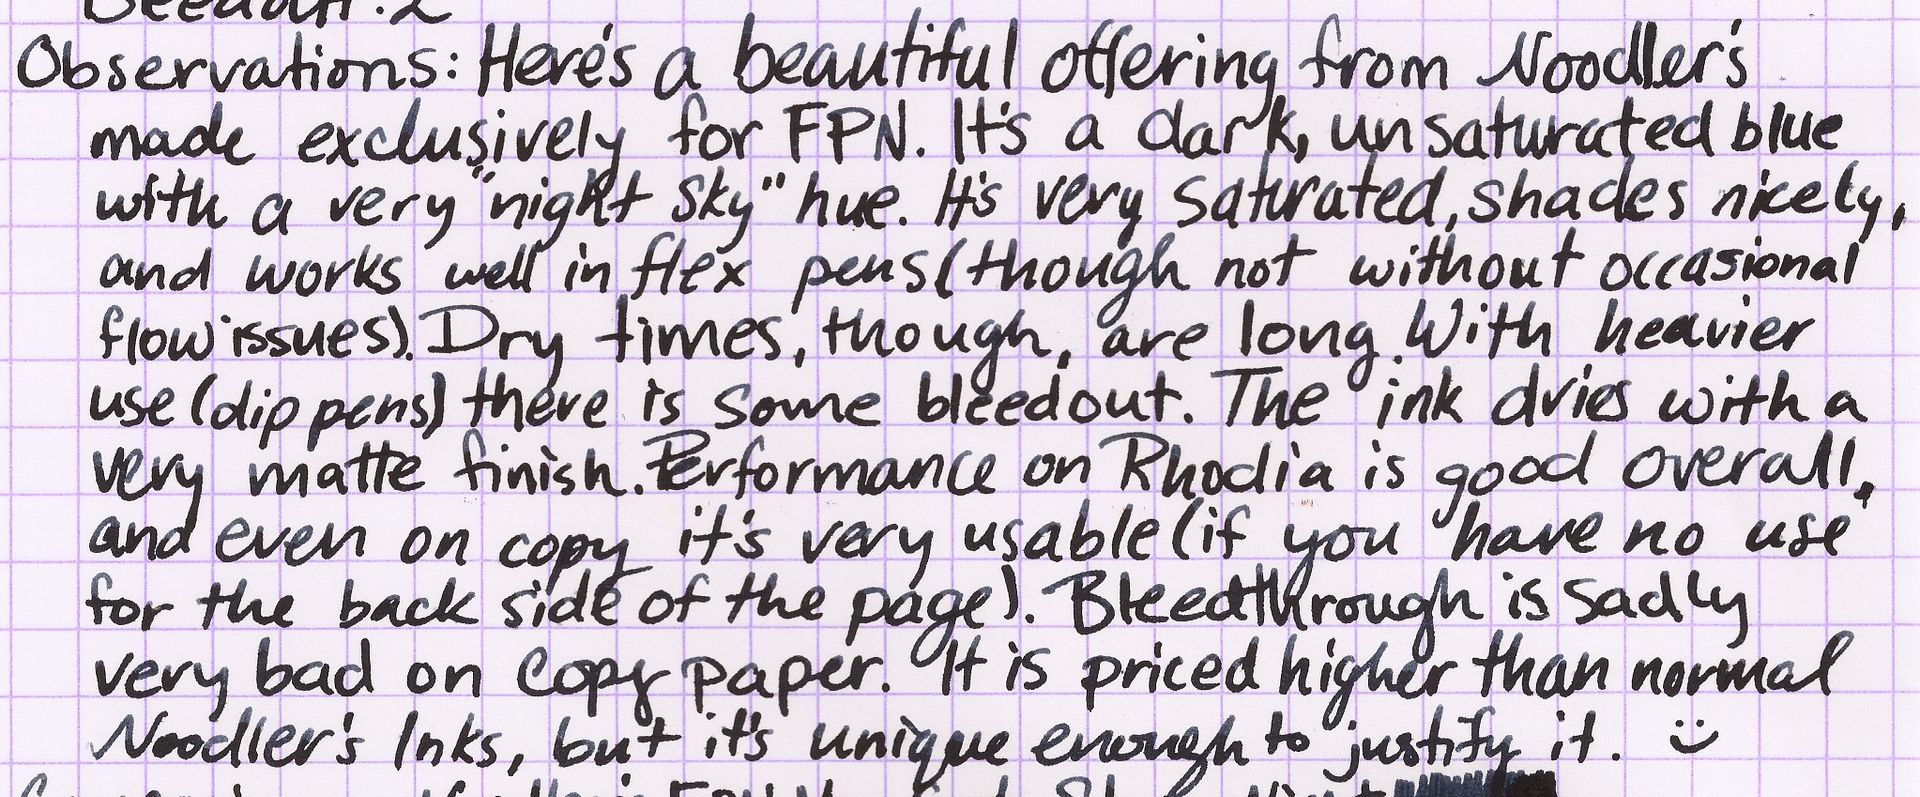 Observations: Here's a beautiful offering from Noodler's
made exclusively for FPN. It's a dark, unsaturated blue
with a very "night sky" hue. It's very saturated, shades nicely,
and works well in flex pens (though not without occasional
flow issues). Dry times, though, are long. With heavier
use (dip pens) there is some bleedout. The ink dries with a
very matte finish. Performance on Rhodia is good overall,
and even on copy it's very usable (if you have no use
for the back side of the page). Bleedthrough is sadly
very bad on copy paper. It is priced higher than normal
Noodler's Inks, but it's unique enough to justify it. :)